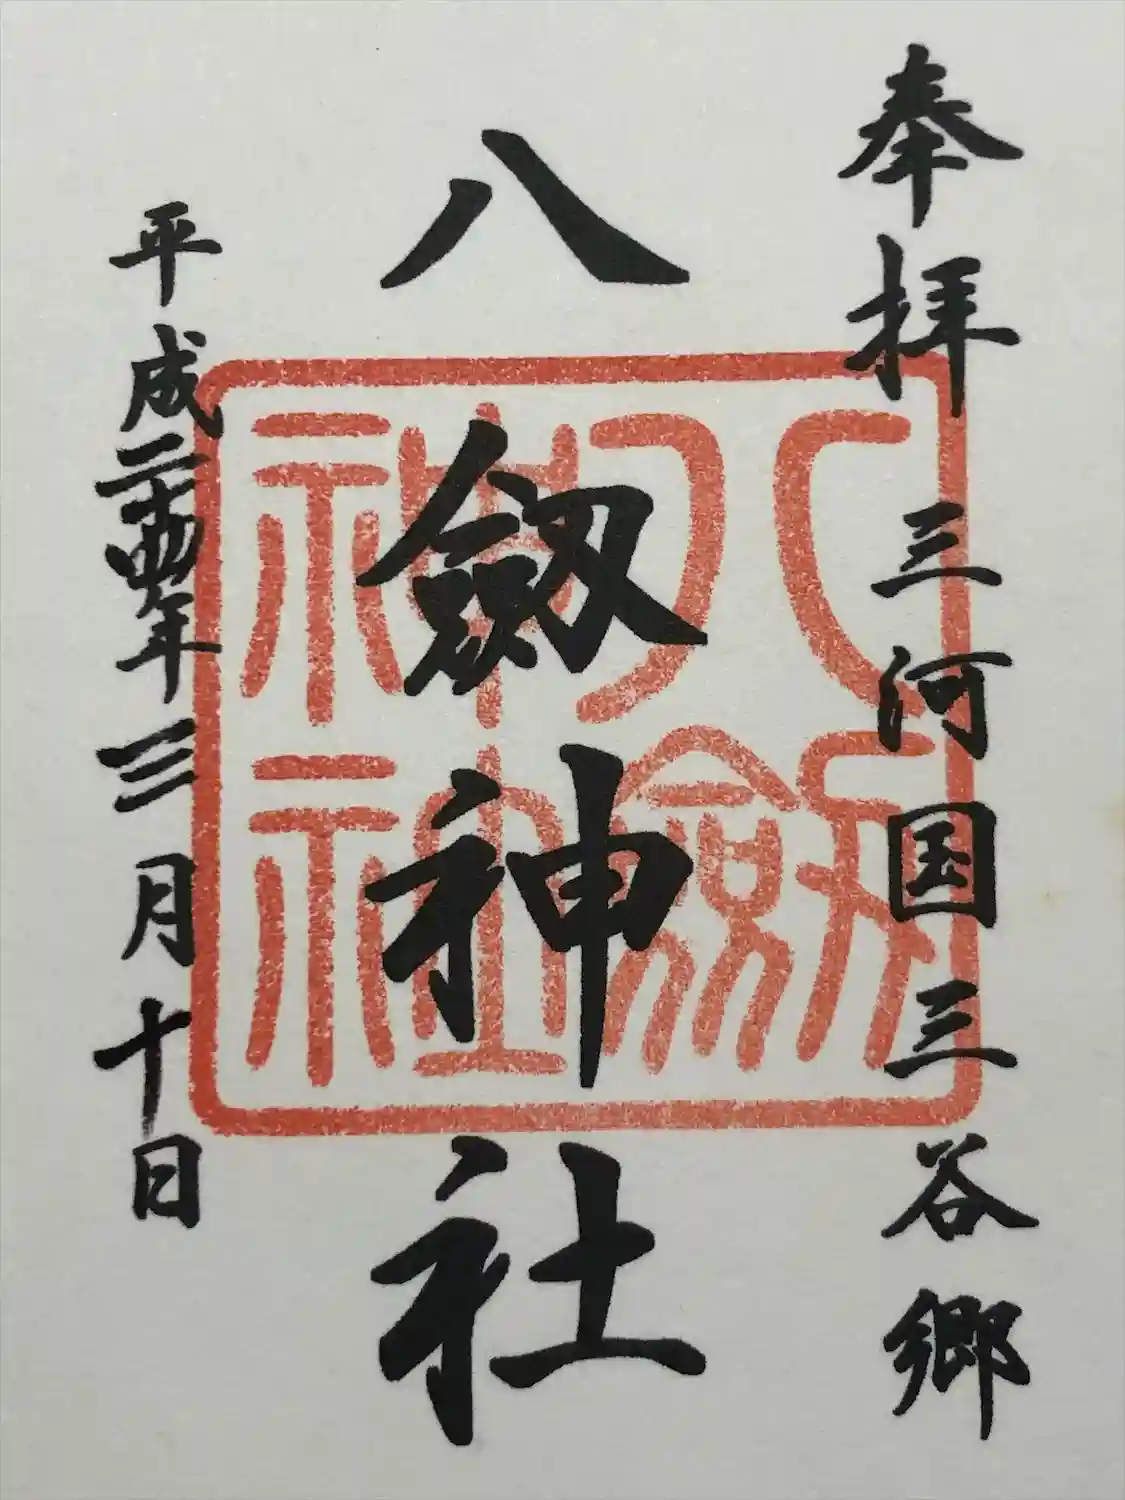 奉拝 三河国三谷郷
八劔神社
八劔神社
平成二十四年三月十日